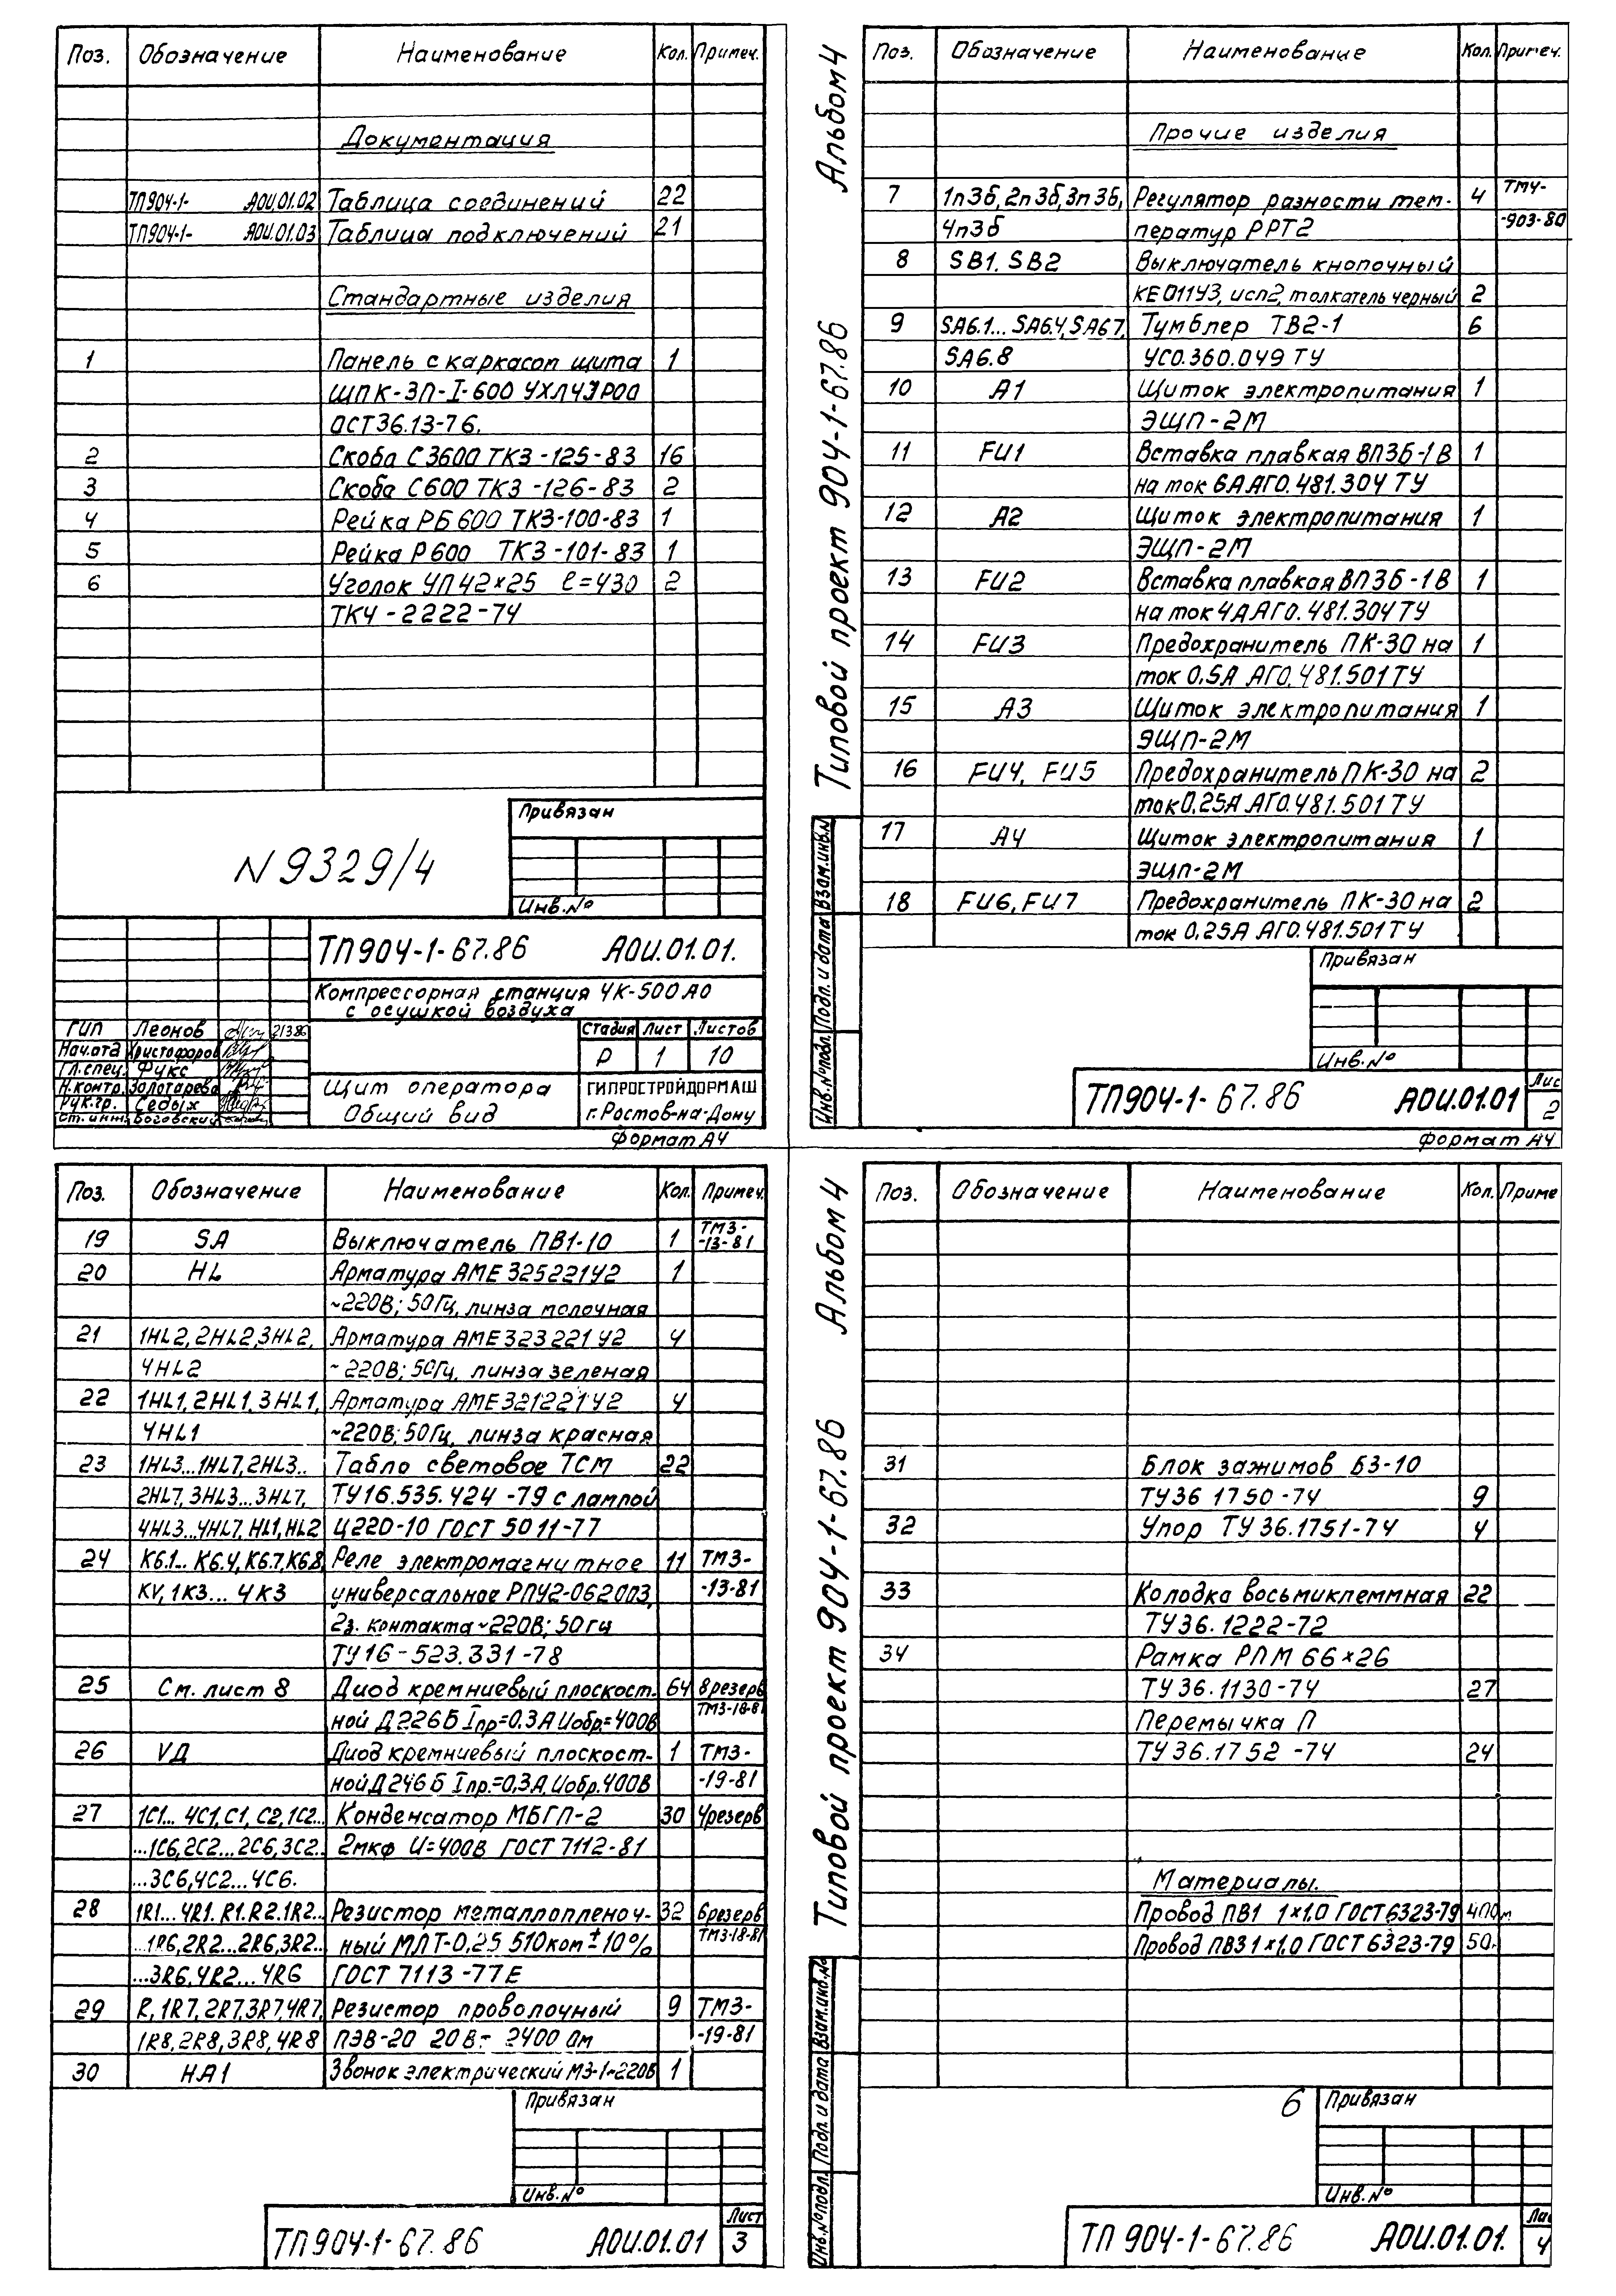 Поз. Обозначение Наименование Кол. Примеч.
Документация
ТП904-1- АОИ.01.02 Таблица соединений 22
ТП904-1- АОИ.01.03 Таблица подключений 21
Стандартные изделия
1 Панель с каркасом щита 1
ЩПК-ЗП-I-600 УХЛ4 IР00
ОСТ36.13-76.
2 Скоба С3600 ТК3-125-83 16
3 Скоба С600 ТК3-126-83 2
4 Рейка РБ600 ТК3-100-83 1
5 Рейка Р600 ТК3-101-83 1
6 Уголок УП42×25 l=430 2
ТК4-2222-74
N9329/4
Привязан
Инв.№
ТП904-1-67.86 АОИ.01.01.
Компрессорная станция 4К-500А0
с осушкой воздуха
ГИП Леонов 21386
Нач.отд Христофоров
Гл.спец. Фукс
Н.контр. Золотарева
Рук.гр. Седых
Ст.инж. Боговский
Стадия Лист Листов
Р 1 10
Щит оператора
Общий вид
ГИПРОСТРОЙДОРМАШ
г.Ростов-на-Дону
Формат А4
Альбом 4
Типовой проект 904-1-67.86
Поз. Обозначение Наименование Кол. Примеч.
Прочие изделия
7 1п3б, 2п3б, 3п3б, Регулятор разности тем- 4 ТМ4-
4п3б ператур РРТ2 -903-80
8 SB1. SB2 Выключатель кнопочный
КЕ011У3, исп2, толкатель черный 2
9 SA6.1... SA6.4, SA6.7, Тумблер ТВ2-1 6
SA6.8 УС0.360.049 ТУ
10 А1 Щиток электропитания 1
ЭЩП-2М
11 FU1 Вставка плавкая ВП3Б-1В 1
на ток 6А АГ0.481.304 ТУ
12 А2 Щиток электропитания 1
ЭЩП-2М
13 FU2 Вставка плавкая ВП3Б-1В 1
на ток 4А АГ0.481.304ТУ
14 FU3 Предохранитель ПК-30 на 1
ток 0,5А АГ0.481.501ТУ
15 А3 Щиток электропитания 1
ЭЩП-2М
16 FU4, FU5 Предохранитель ПК-30 на 2
ток 0,25А АГ0.481.501 ТУ
17 А4 Щиток электропитания 1
ЭЩП-2М
18 FU6, FU7 Предохранитель ПК-30 на 2
ток 0,25А АГ0.481.501ТУ
Инв.№подл. Подп. и дата Взам.инв.№
Привязан
Инв.№
ТП904-1-67.86 АОИ.01.01 Лис
2
Формат А4
Поз. Обозначение Наименование Кол. Примеч.
19 SA Выключатель ПВ1-10 1 ТМ3-
-13-81
20 HL Арматура АМЕ325221У2 1
~220В; 50Гц, линза молочная
21 1HL2, 2HL2, 3HL2, Арматура АМЕ323221У2 4
4HL2 ~220В; 50Гц, линза зеленая
22 1HL1, 2HL1, 3HL1, Арматура АМЕ321221У2 4
4HL1 ~220В; 50Гц, линза красная
23 1HL3...1HL7, 2HL3.. Табло световое ТСМ 22
2HL7, 3HL3...3HL7, ТУ16.535.424-79 с лампой
4HL3...4HL7, HL1, HL2 Ц220-10 ГОСТ 5011-77
24 К6.1... К6.4, К6.7, К6.8, Реле электромагнитное 11 ТМ3-
KV, 1К3... 4К3 универсальное РПУ2-062003, -13-81
2з. контакта ~220В; 50гц
ТУ16-523.331-78
25 См. лист 8 Диод кремниевый плоскост- 64 8резерв
ной Д226Б Iпр=0.3А Uобр=400В ТМ3-18-81
26 VД Диод кремниевый плоскост- 1 ТМ3-
ной Д246Б Iпр.=0,3А, Uобр.400В -19-81
27 1С1... 4С1, С1, С2, 1С2... Конденсатор МБГП-2 30 4резерв
...1С6, 2С2...2С6, 3С2.. 2мкф U=400В ГОСТ 7112-81
...3С6, 4С2...4С6.
28 1R1... 4R1. R1. R2. 1R2... Резистор металлопленоч- 32 6резерв
...1R6, 2R2...2R6, 3R2.. ный МЛТ-0,25 510ком ±10% ТМ3-18-81
...3R6, 4R2... 4R6 ГОСТ 7113-77Е
29 R, 1R7, 2R7, 3R7, 4R7, Резистор проволочный 9 ТМ3-
1R8, 2R8, 3R8, 4R8 ПЭВ-20 20Вт 2400 Ом -19-81
30 НА1 Звонок электрический МЗ-1~220В 1
Привязан
Инв.№
ТП904-1-67.86 АОИ.01.01 Лист
3
Альбом 4
Типовой проект 904-1-67.86
Поз. Обозначение Наименование Кол. Приме
31 Блок зажимов БЗ-10
ТУ36 1750-74 9
32 Упор ТУ36.1751-74 4
33 Колодка восьмиклеммная 22
ТУ36.1222-72
34 Рамка РПМ 66×26
ТУ36.1130-74 27
Перемычка П
ТУ36.1752-74 24
Материалы.
Провод ПВ1 1×1,0 ГОСТ6323-79 400м
Провод ПВ3 1×1,0 ГОСТ 6323-79 50
Инв.№подл. Подп. и дата Взам.инв.№
6
Привязан
Инв.№
ТП 904-1-67.86 АОИ.01.01. Ли
4